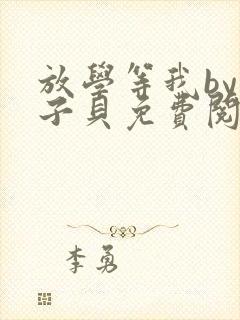 放學等我by
子貝免費閱
李勇